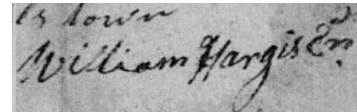 is town
William Hargis Sn.